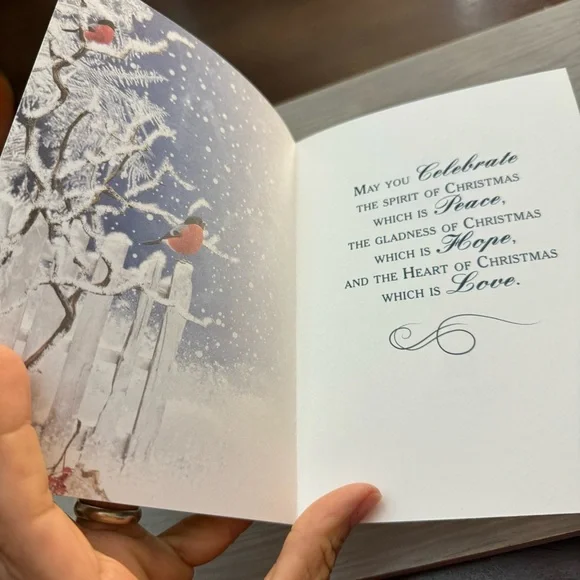 May you Celebrate
the spirit of Christmas
which is Peace,
the gladness of Christmas
which is Hope,
and the Heart of Christmas
which is Love.